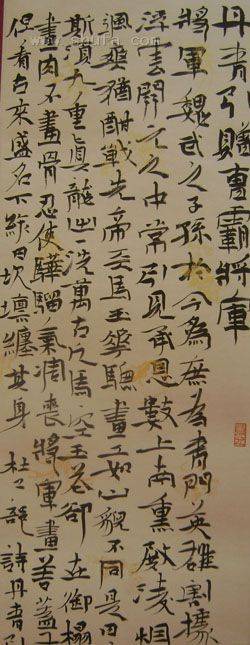 丹青引贈曹霸將軍
將軍魏武之子孫於今為庶為青門英雄割據
浮雲開元之中常引見承恩數上南熏殿凌烟
颯爽猶酣戰先帝天馬玉華驄畫工如山貌不同是日
斯須九重真龍出一洗萬古凡馬空玉花卻在御榻
畫肉不畫骨忍使驊騮氣凋喪將軍畫善蓋
但看古來盛名下終日坎壈纏其身杜工部詩丹青引